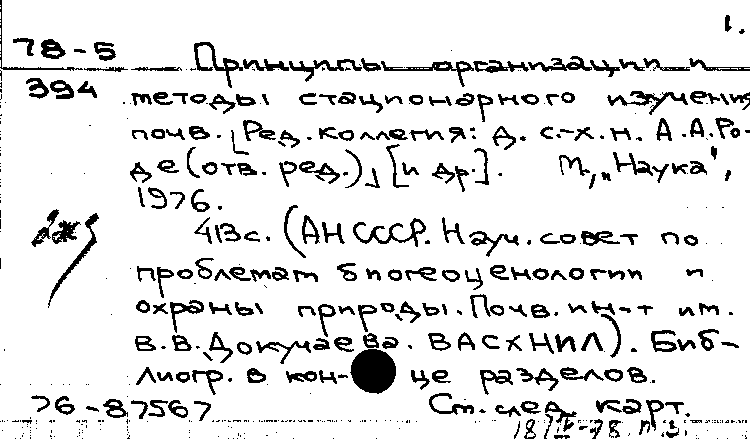 1.
78-5 Принципы организации и
394 методы стационарного изучения
почв. [Ред. коллегия: д. с.-х. н. А.А.Ро-
де (отв. ред.)], [и др.]. М., „Наука",
1976.
413с. (АН СССР. Науч. совет по
проблемам биогеоценологии и
охраны природы. Почв. ин-т им.
В.В. Докучаева. ВАСХНИЛ). Биб-
лиогр. в кон- це разделов.
76-87567 Ст. след. карт.
18/IV-78